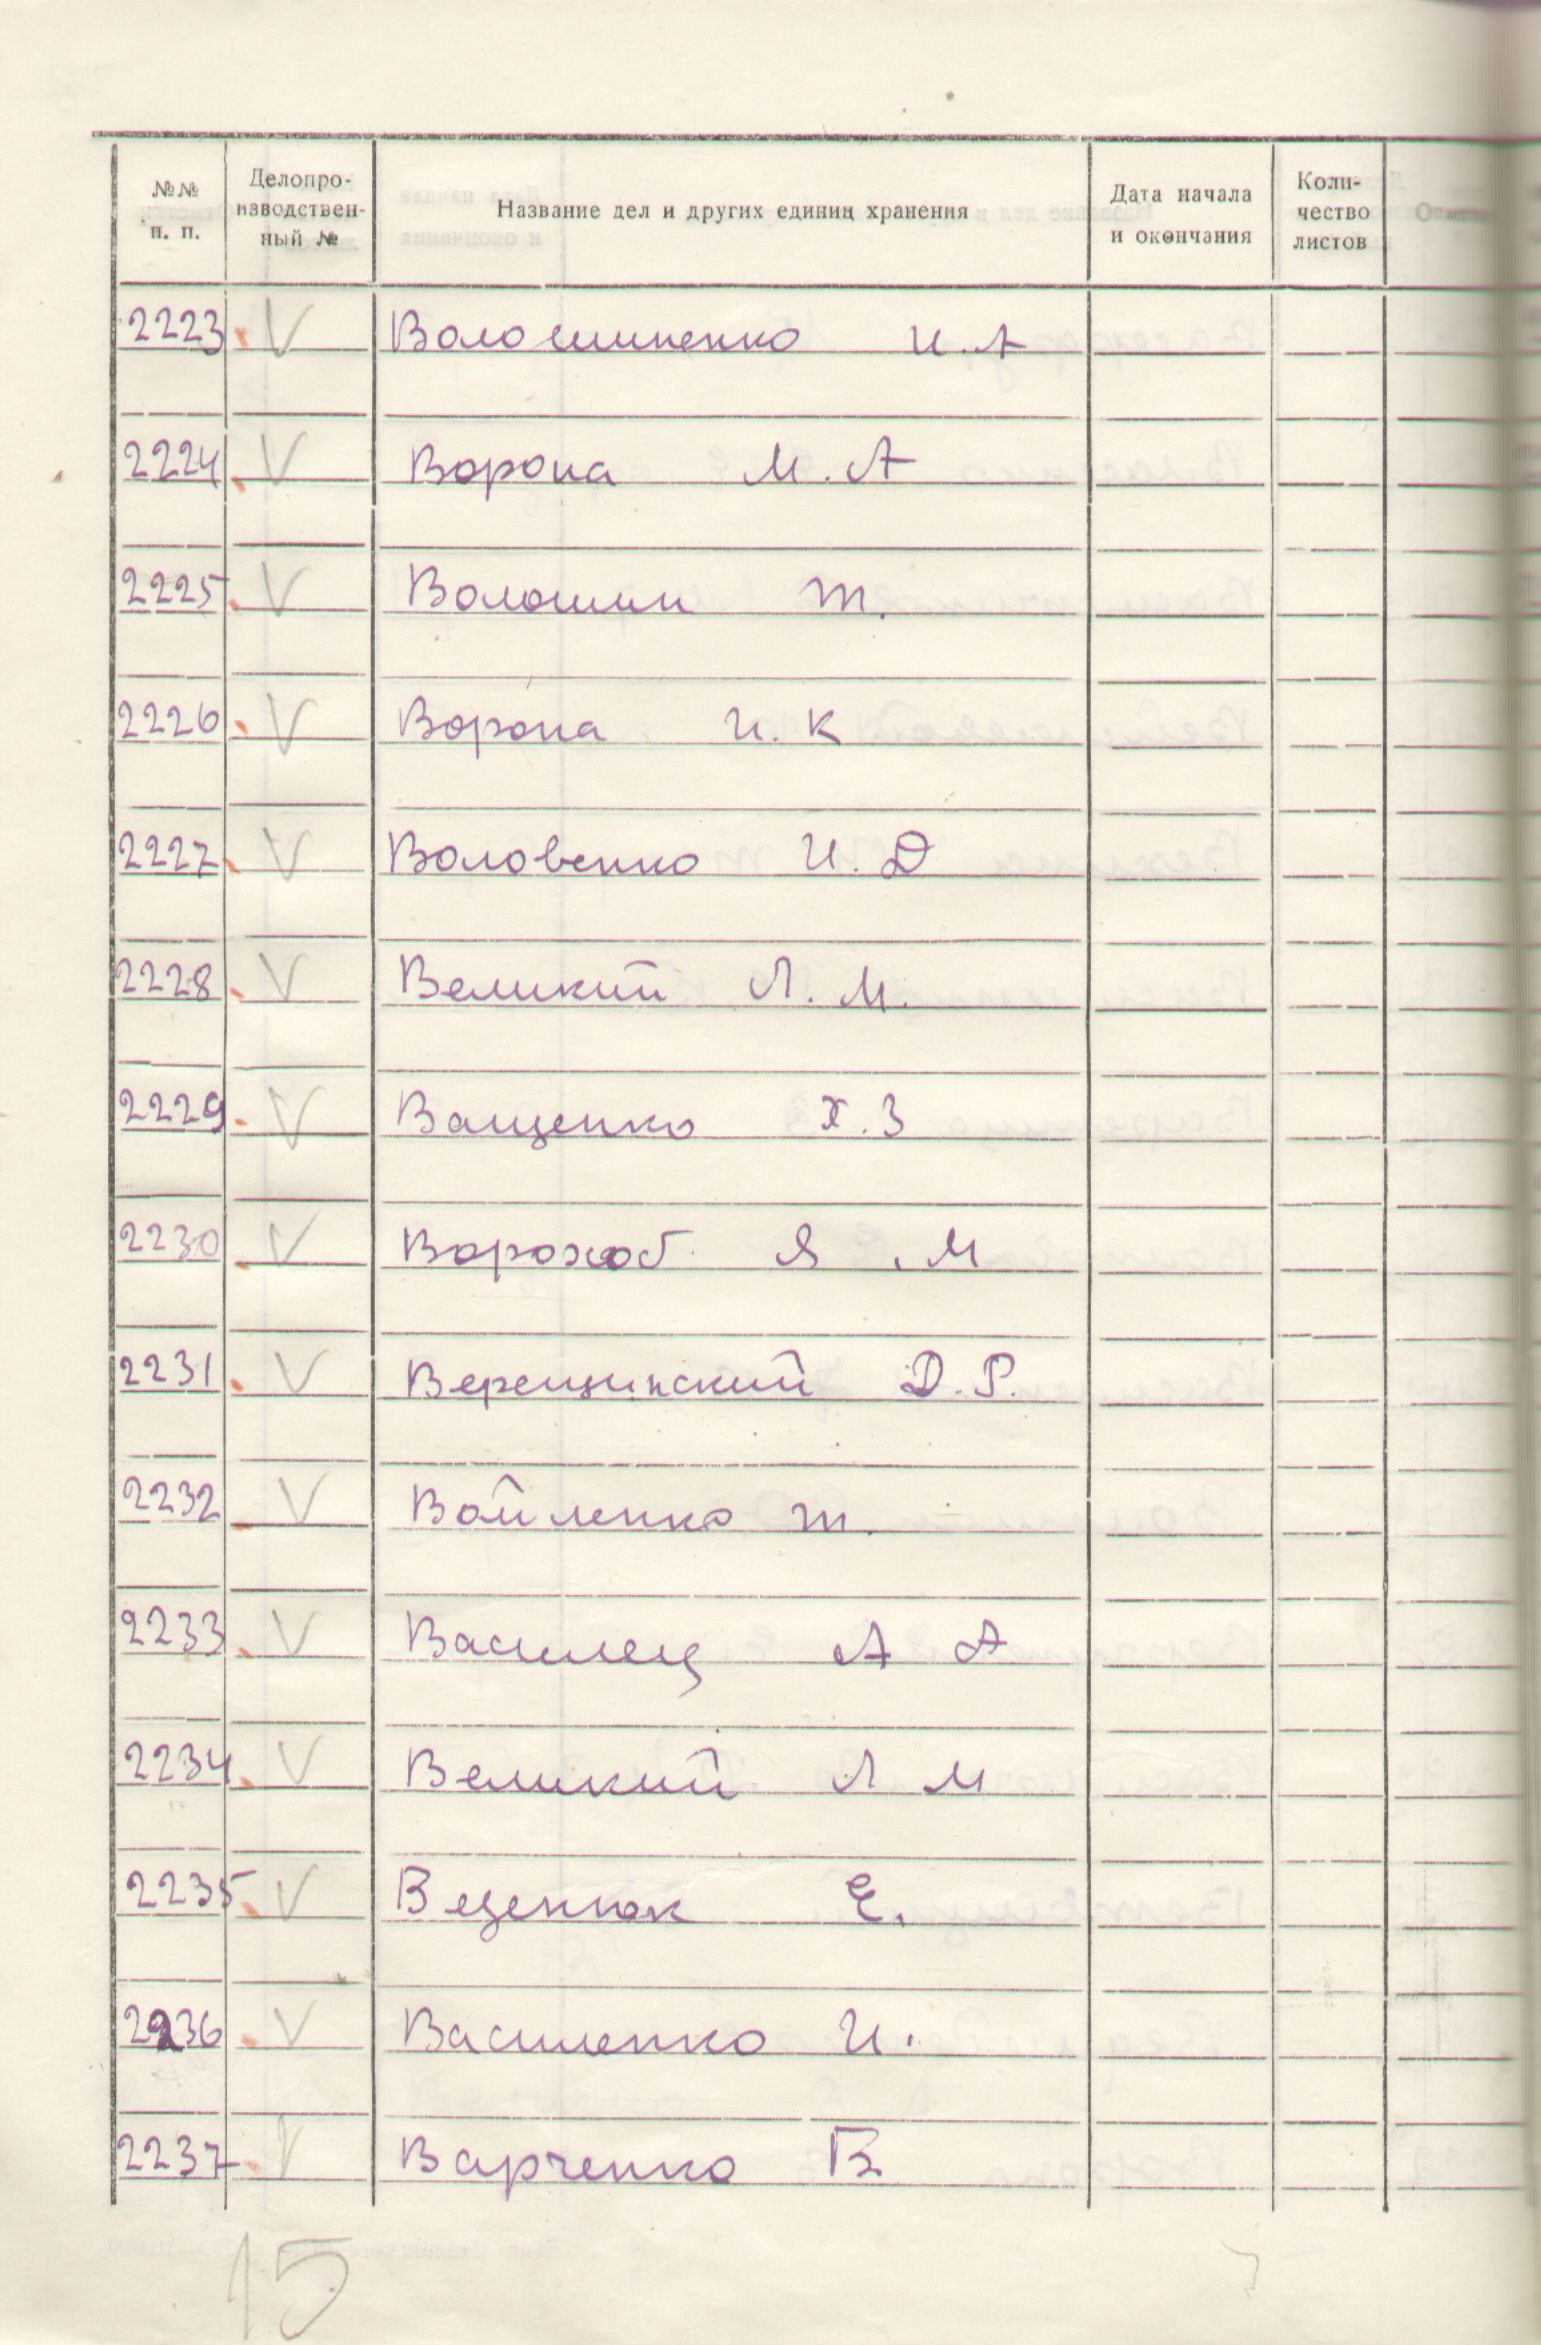 №№ п. п. Делопроизводственный № Название дел и других единиц хранения Дата начала и окончания Количество листов
2223. V Волошиненко И. А
2224. V Ворона М. А
2225. V Волошин Т.
2226. V Ворона И. К
2227. V Воловенко И. Д
2228. V Великий Л. М.
2229. V Ващенко Х. З
2230. V Ворожоб Я. М
2231. V Верещинский Д. Р.
2232. V Войленко Т.
2233. V Василец А А
2234. V Великий Л М
2235. V Веценюк Е.
2236. V Василенко И.
2237. V Варченко Б
15